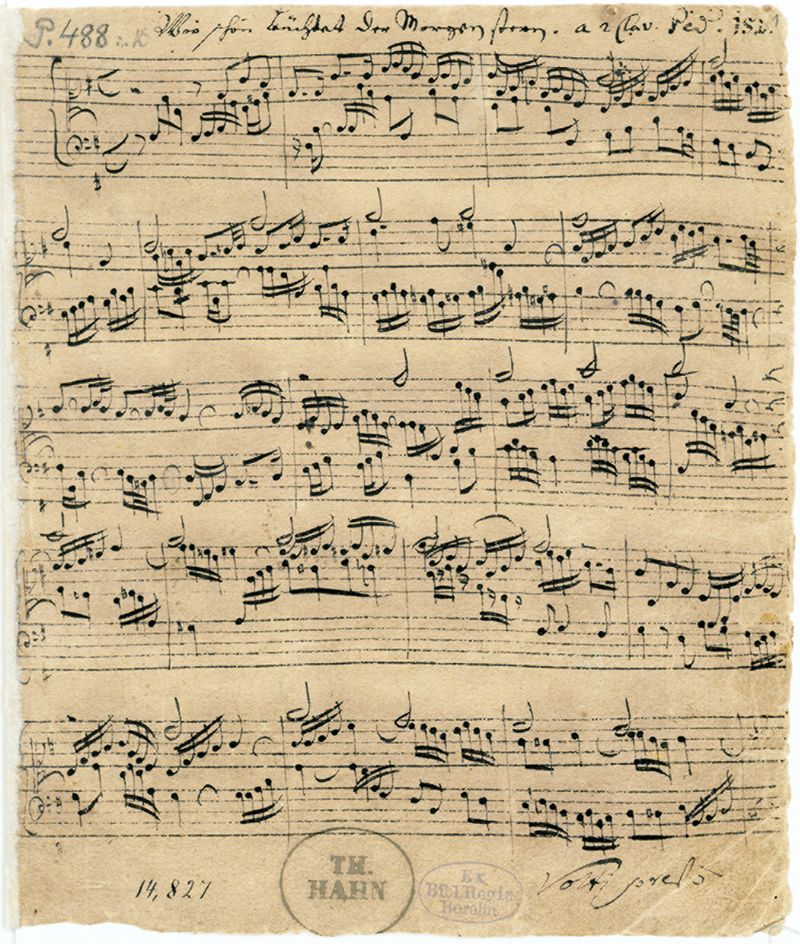 P. 488
Wie schön leüchtet der Morgenstern. a 2 Clav. Ped.
14,827
TH.
HAHN
Ex
Bibl.Regia
Berolin
Volti presto